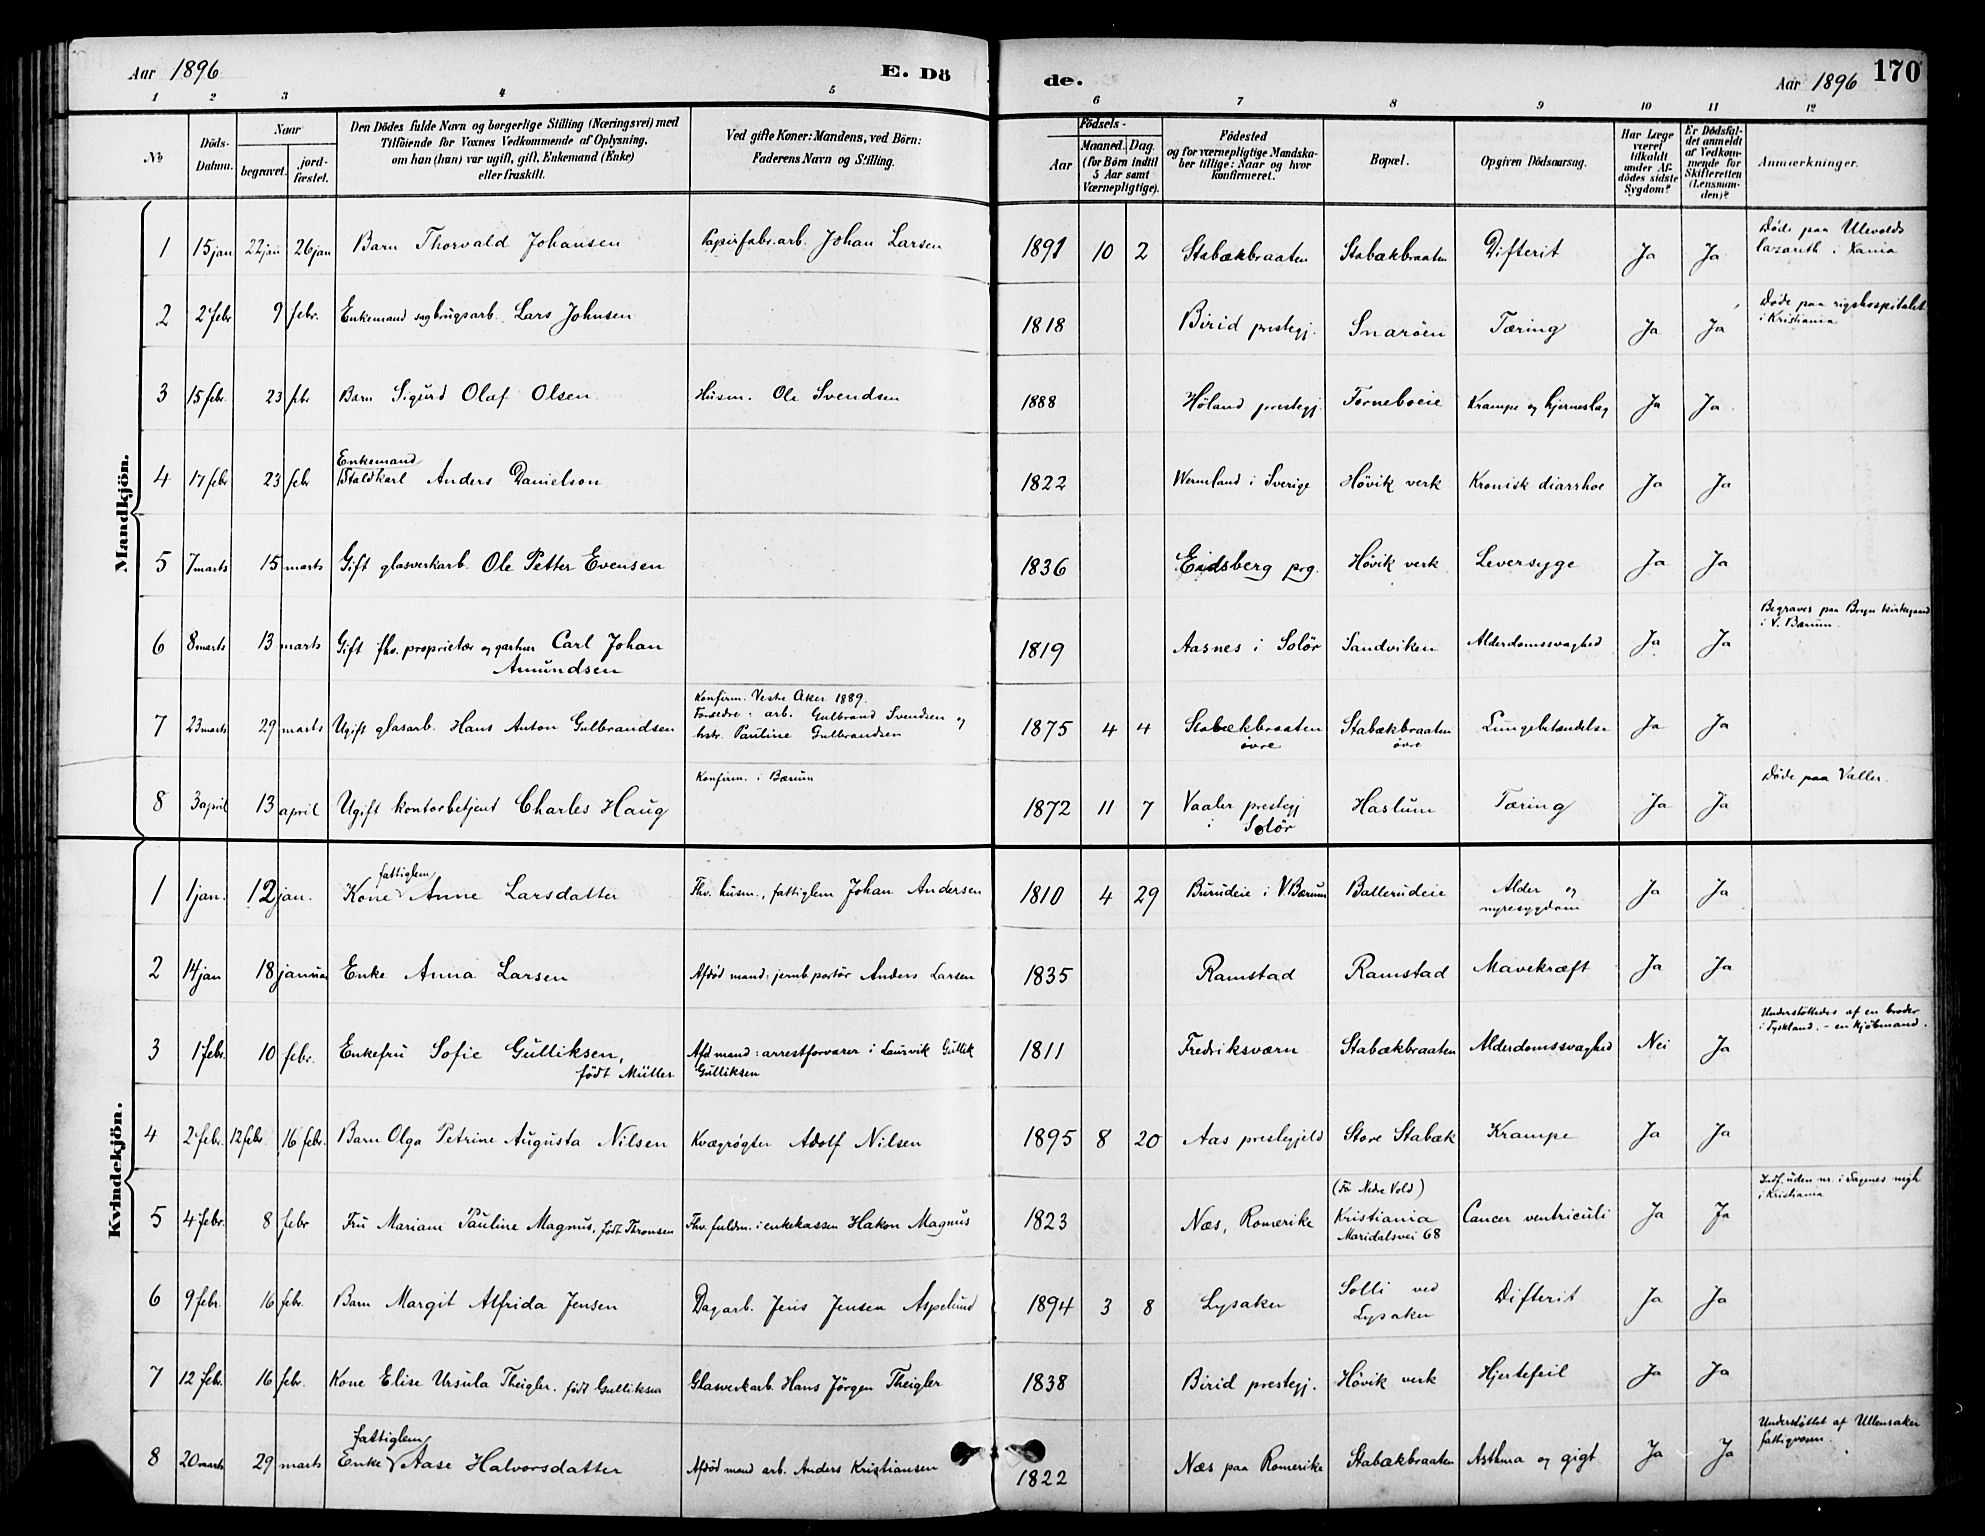 Aar 1896 E. Dö de. Aar 1896 170
1 2 3 4 5 6 7 8 9 10 11 12
№ Döds-Datum. Naar begravet. jord-fæstet. Den Dödes fulde Navn og borgerlige Stilling (Næringsvei) med Tilföiende for Voxnes Vedkommende af Oplysning, om han (hun) var ugift, gift, Enkemand (Enke) eller fraskilt. Ved gifte Koner: Mandens, ved Börn: Faderens Navn og Stilling. Födsels- Aar Maaned. Dag. (for Börn indtil 5 Aar samt Værnepligtige). Födested og for værnepligtige Mandskaber tillige: Naar og hvor konfirmeret. Bopæl. Opgiven Dödsaarsag. Har Læge været tilkaldt under Afdödes sidste Sygdom? Er Dödsfaldet anmeldt af Vedkommende for Skifteretten (Lensmanden)? Anmærkninger.
Mandkjön.
1 15 jan 22 jan 26 jan Barn Thorvald Johansen Papirfabr.arb. Johan Larsen 1891 10 2 Stabækbraaten Stabækbraaten Difterit Ja Ja Döde paa Ulevolds lazareth i Xania
2 2 febr 9 febr. Enkemand sagbrugsarb. Lars Johnsen 1818 Birid prestegj. Snaröen Tæring Ja Ja Döde paa rigshospitalet i Kristiania
3 15 febr. 23 febr Barn Sigurd Olaf Olsen Husm. Ole Svendsen 1888 Höland prestegj. Forneboeie Krampe og hjerneslag Ja Ja
4 17 febr 23 febr Enkemand Staldkarl Anders Danielson 1822 Wermland i Sverige Hövik verk Kronisk diarrhoe Ja Ja
5 7 marts 15 marts Gift glasverkarb. Ole Petter Evensen 1836 Eidsberg prg. Hövik verk Leversyge Ja Ja
6 8 marts 13 marts Gift fhv. proprietær og gartner Carl Johan Amundsen 1819 Aasnes i Solör Sandviken Alderdomssvaghed Ja Ja Begraves paa Bryn kirkegaard i V. Bærum.
7 23 marts 29 marts Ugift glasarb. Hans Anton Gulbrandsen Konfirm. Vestre Aker 1889. Forældre: arb. Gulbrand Svendsen og hstr. Pauline Gulbrandsen 1875 4 4 Stabækbraaten övre Stabækbraaten övre Lungebetændelse Ja Ja
8 3 april 13 april Ugift kontorbetjent Charles Haug Konfirm. i Bærum 1872 11 7 Vaaler prestegj i Solör Haslum Tæring Ja Ja Döde paa Valler.
Kvindekjön.
1 1 jan. 12 jan. Kone fattiglem Anne Larsdatter Fhv. husm., fattiglem Johan Andersen 1810 4 29 Burudeie i V Bærum Ballerudeie Alder og nyresygdom Ja Ja
2 14 jan 18 januar Enke Anna Larsen Afdöd mand: jernb.portör Anders Larsen 1835 Ramstad Ramstad Mavekræft Ja Ja
3 1 febr. 10 febr. Enkefru Sofie Gulliksen, födt Müller Afd mand: arrestforvarer i Laurvik Gullik Gulliksen 1811 Fredriksværn Stabækbraaten Alderdomssvaghed Nei Ja Understöttedes af en broder i Tyskland, - en kjöbmand.
4 2 febr. 12 febr. 16 febr. Barn Olga Petrine Augusta Nilsen Kvægrögter Adolf Nilsen 1895 8 20 Aas prestegjeld Store Stabæk Krampe Ja Ja
5 4 febr. 8 febr Fru Mariam Pauline Magnus, födt Thronsen Fhv. fuldm. i enkekassen Hakon Magnus 1823 Næs, Romerike (Fö Nedre Vold) Kristiania Maridalsvei 68 Cancer ventriculi Ja Ja Indf. uden nr. i Sagenes mgh i Kristiania
6 9 febr. 16 febr. Barn Margit Alfrida Jensen Dagarb. Jens Jensen Aspelund 1894 3 8 Lysaker Solli ved Lysaker Difterit Ja Ja
7 12 febr. 16 febr. Kone Elise Ursula Theigler, födt Gulliksen Glasverkarb. Hans Jörgen Theigler 1838 Birid prestegj. Hövik verk Hjertefeil Ja Ja
8 20 marts 29 marts Enke fattiglem Aase Halvorsdatter Afdöd mand arb. Anders Kristiansen 1822 Næs paa Romerike Stabækbraaten Asthma og gigt Ja Ja Understöttet af Ullensaker fattigvæsen.